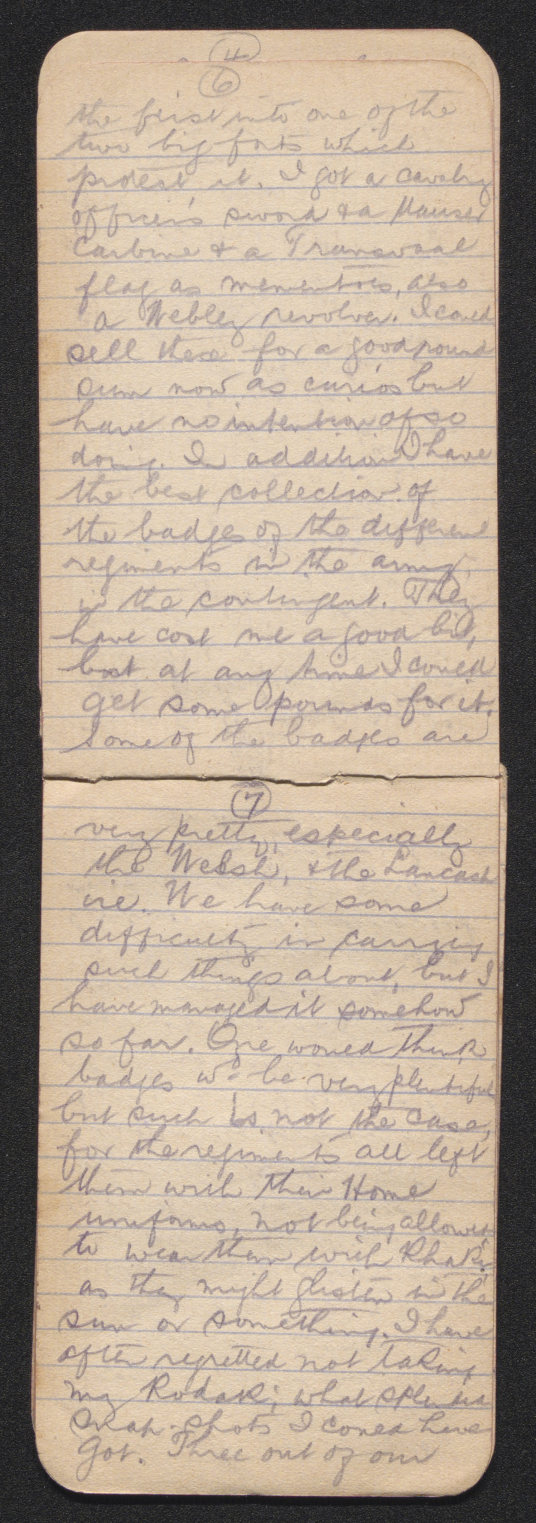 4
6
the first into one of the
two big forts which
protect it. I got a cavalry
officer's sword & a Mauser
Carbine & a Transvaal
flag as mementoes, also
a Webley revolver. I could
sell these for a good round
sum now as curios but
have no intention of so
doing. In addition I have
the best collection of
the badges of the different
regiments in the army
in the contingent. They
have cost me a good bit,
but at any time I could
get some pounds for it.
Some of the badges are
7
very pretty, especially
the Welsh, & the Lancash
ire. We have some
difficulty in carrying
such things about, but I
have managed it somehow
so far. One would think
badges wd be very plentiful
but such is not the case,
for the regiments all left
them with their Home
uniforms, not being allowed
to wear them with Khaki
as they might glisten in the
sun or something. I have
often regretted not taking
my Kodak; what splendid
snap-shots I could have
got. Three out of our